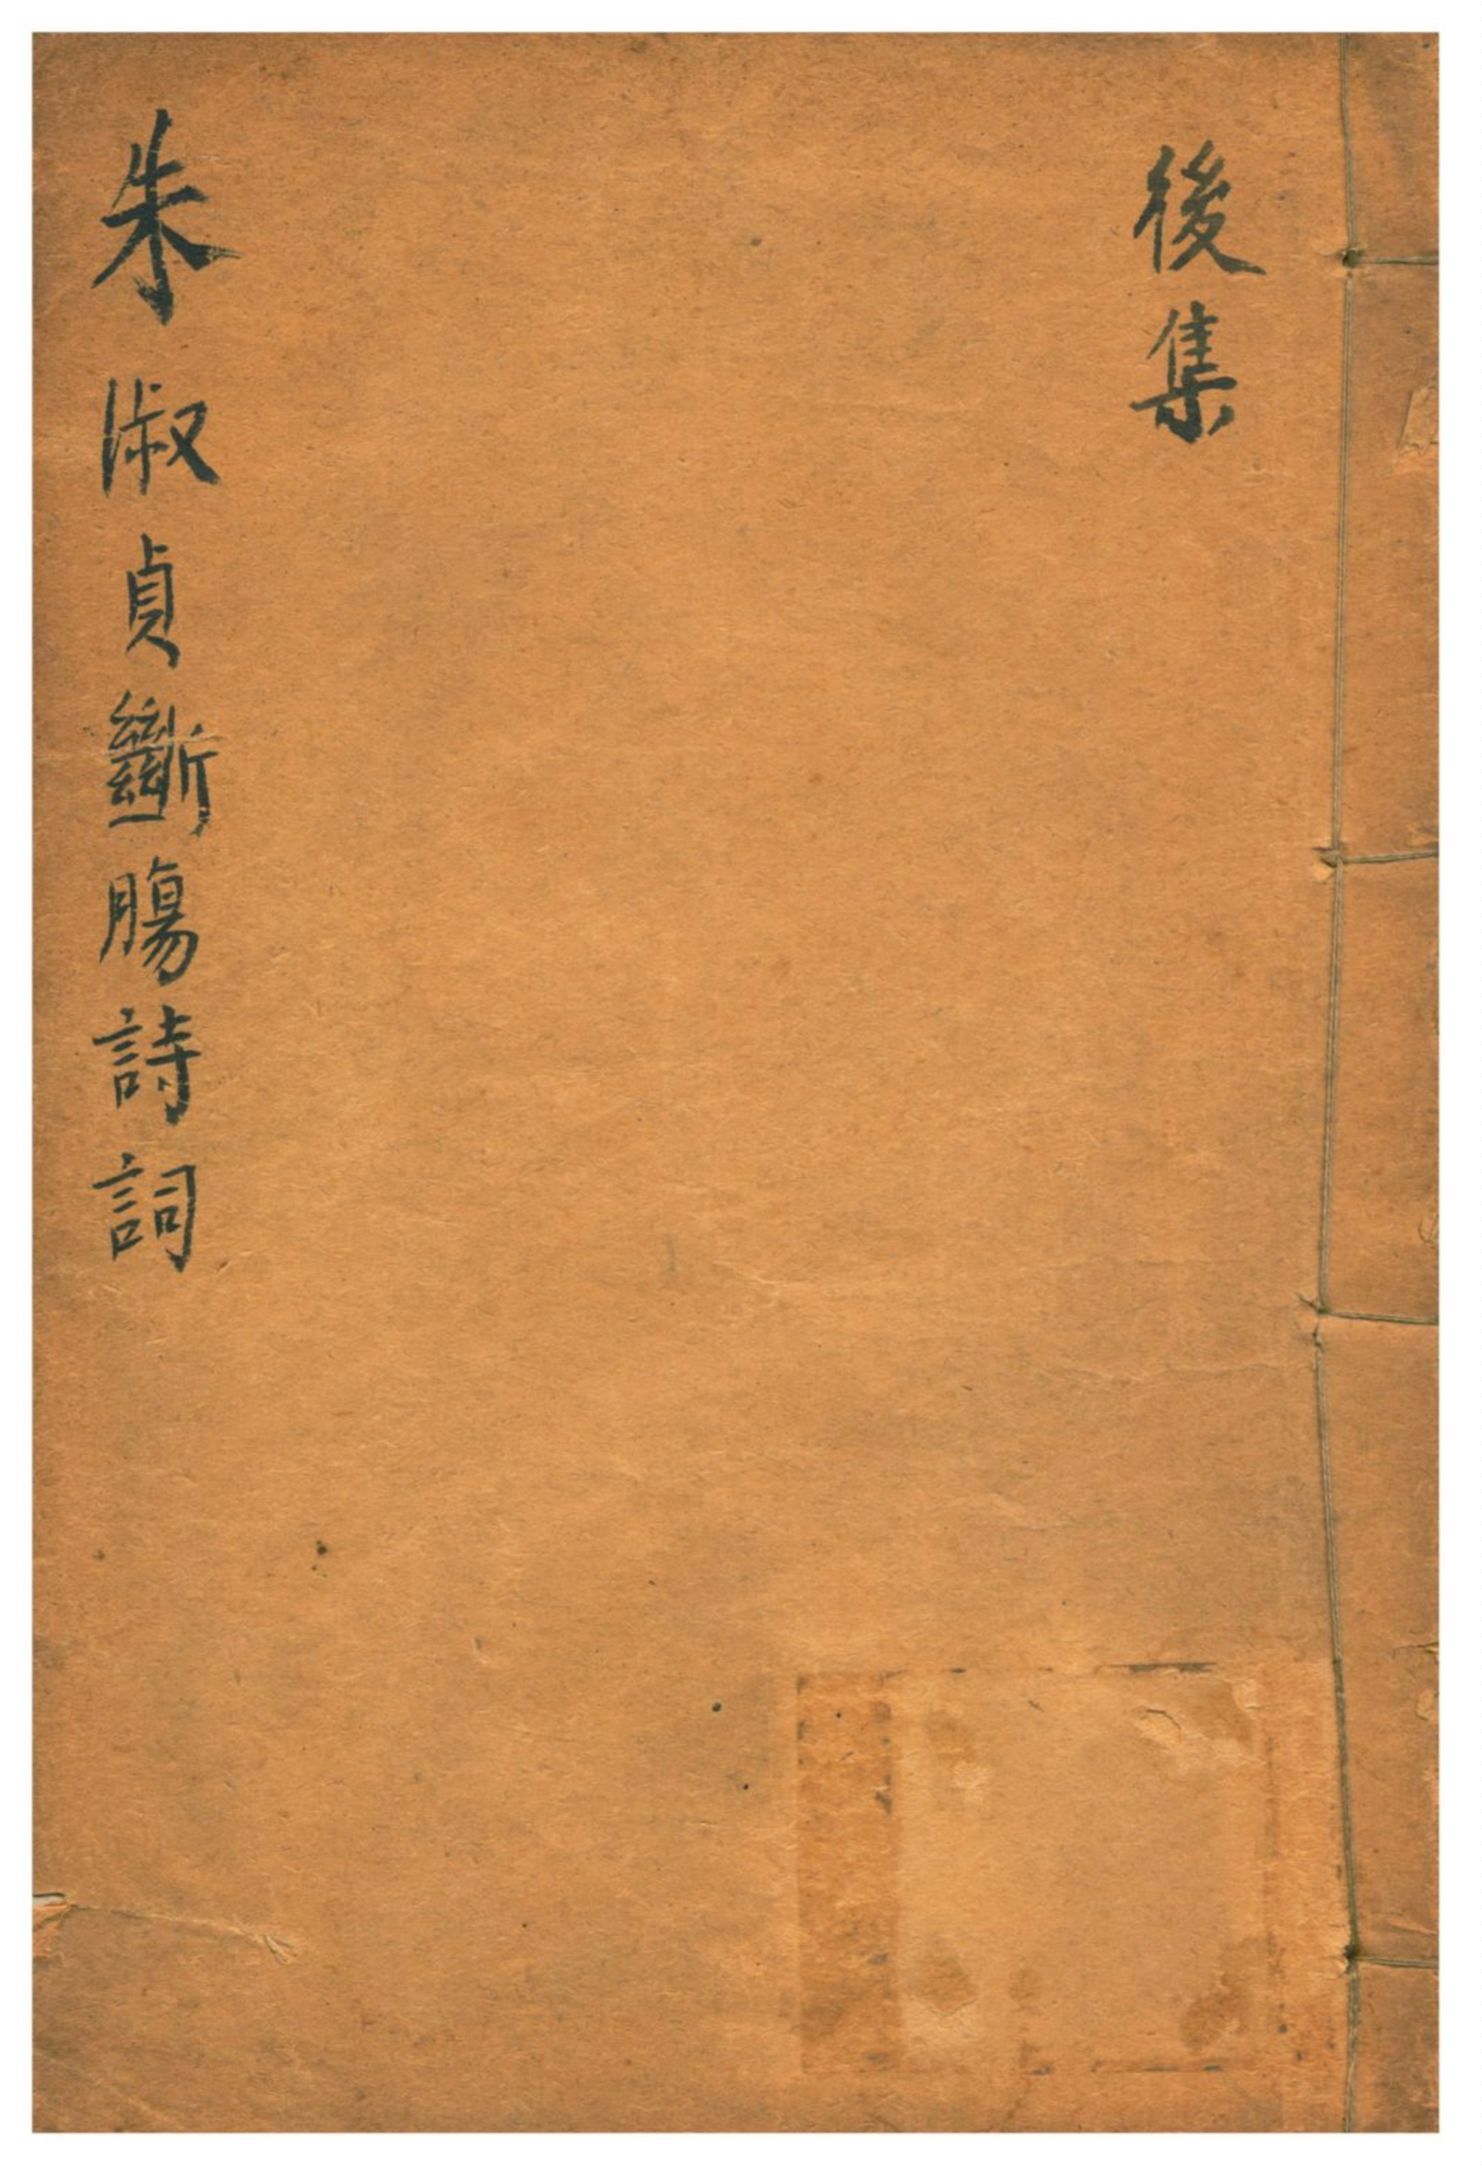 後集
朱淑貞斷腸詩詞